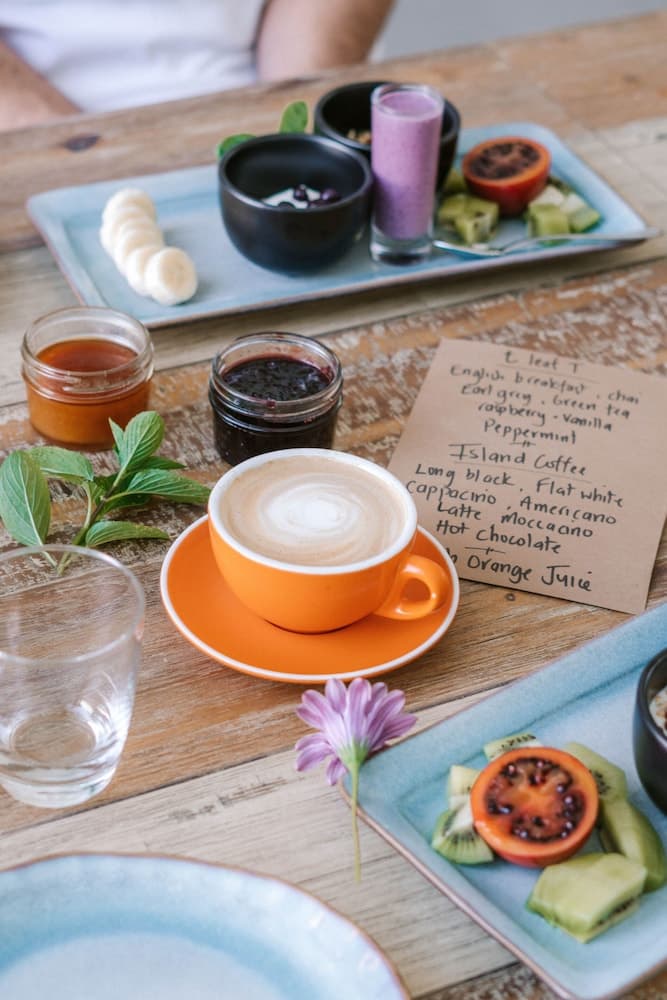 leaf T
English breakfast, chai
Earl grey, Green tea
raspberry, vanilla
Peppermint
Island Coffee
Long black, Flat white
Cappacino, Americano
Latte Moccacino
Hot Chocolate
Orange Juie